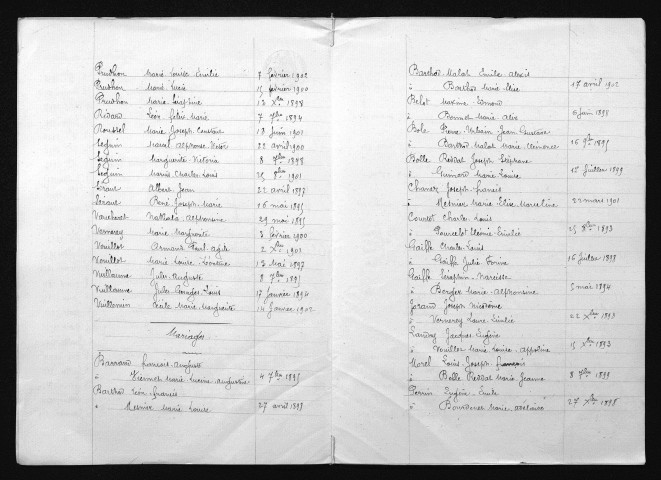 Prudhon Marie Louise Emilie 7 février 1902
Prudhon Marie Lucie 15 février 1900
Prudhon Marie Séraphine 13 Xbre 1898
Rédard Léon Félix Marie 7 7bre 1894
Roussel Marie Joseph Constant 18 juin 1901
Seguin Marcel Alphonse Victor 22 avril 1900
Seguin Marguerite Victoria 8 7bre 1898
Seguin Marius Charles Louis 25 8bre 1901
Albert Jean 22 avril 1897
René Joseph Marie 16 mai 1895
Nathalie Alphonsine 29 mai 1895
Vernerey Marie Marguerite 3 février 1900
Vouillot Armand Paul 2 Xbre 1901
Vouillot Marie Louise Léontine 13 mai 1897
Vuillaume Jules Auguste 8 7bre 1895
Vuillaume Jules Georges Louis 17 janvier 1894
Vuillemin Cécile Marie Marguerite 14 janvier 1902
Mariages
Barrand François August
à Viennet Marie Lucine Augustine 4 7bre 1895
Barthod Léon Francis
à Mesnier Marie Louise 27 avril 1898
Barthod Malat Emile Alexis
à Barthod Marie Elise 17 avril 1902
Belot Maxime Edmond
à Bonnet Marie Alix 6 juin 1898
Bole Pierre Urbain Jean Gustave
à Barthod Malat Marie Clémence 16 9bre 1895
Bolle Reddat Joseph Stéphane
à Guinard Marie Louise 12 juillet 1899
Chanez Joseph Francis
à Mesnier Marie Elise Marceline 22 mars 1901
Courlet Charles Louis
à Pourcelot Cléonie Emilie 25 8bre 1893
Gaiffe Charles Louis
à Gaiffe Julie 16 juillet 1898
Gaiffe Séraphin Narcisse
à Berger Marie Alphonsine 5 mai 1894
Girard Joseph Nicodème
à Vernerey Laure Emilie 22 Xbre 1893
Landry Jacques Eugène
à Vouillot Marie Louise Appoline 15 Xbre 1893
Morel Louis Joseph François
à Bolle Reddat Marie Jeanne 8 7bre 1899
Perrin Eugène Emile
à Marie Adélaïde 27 Xbre 1898